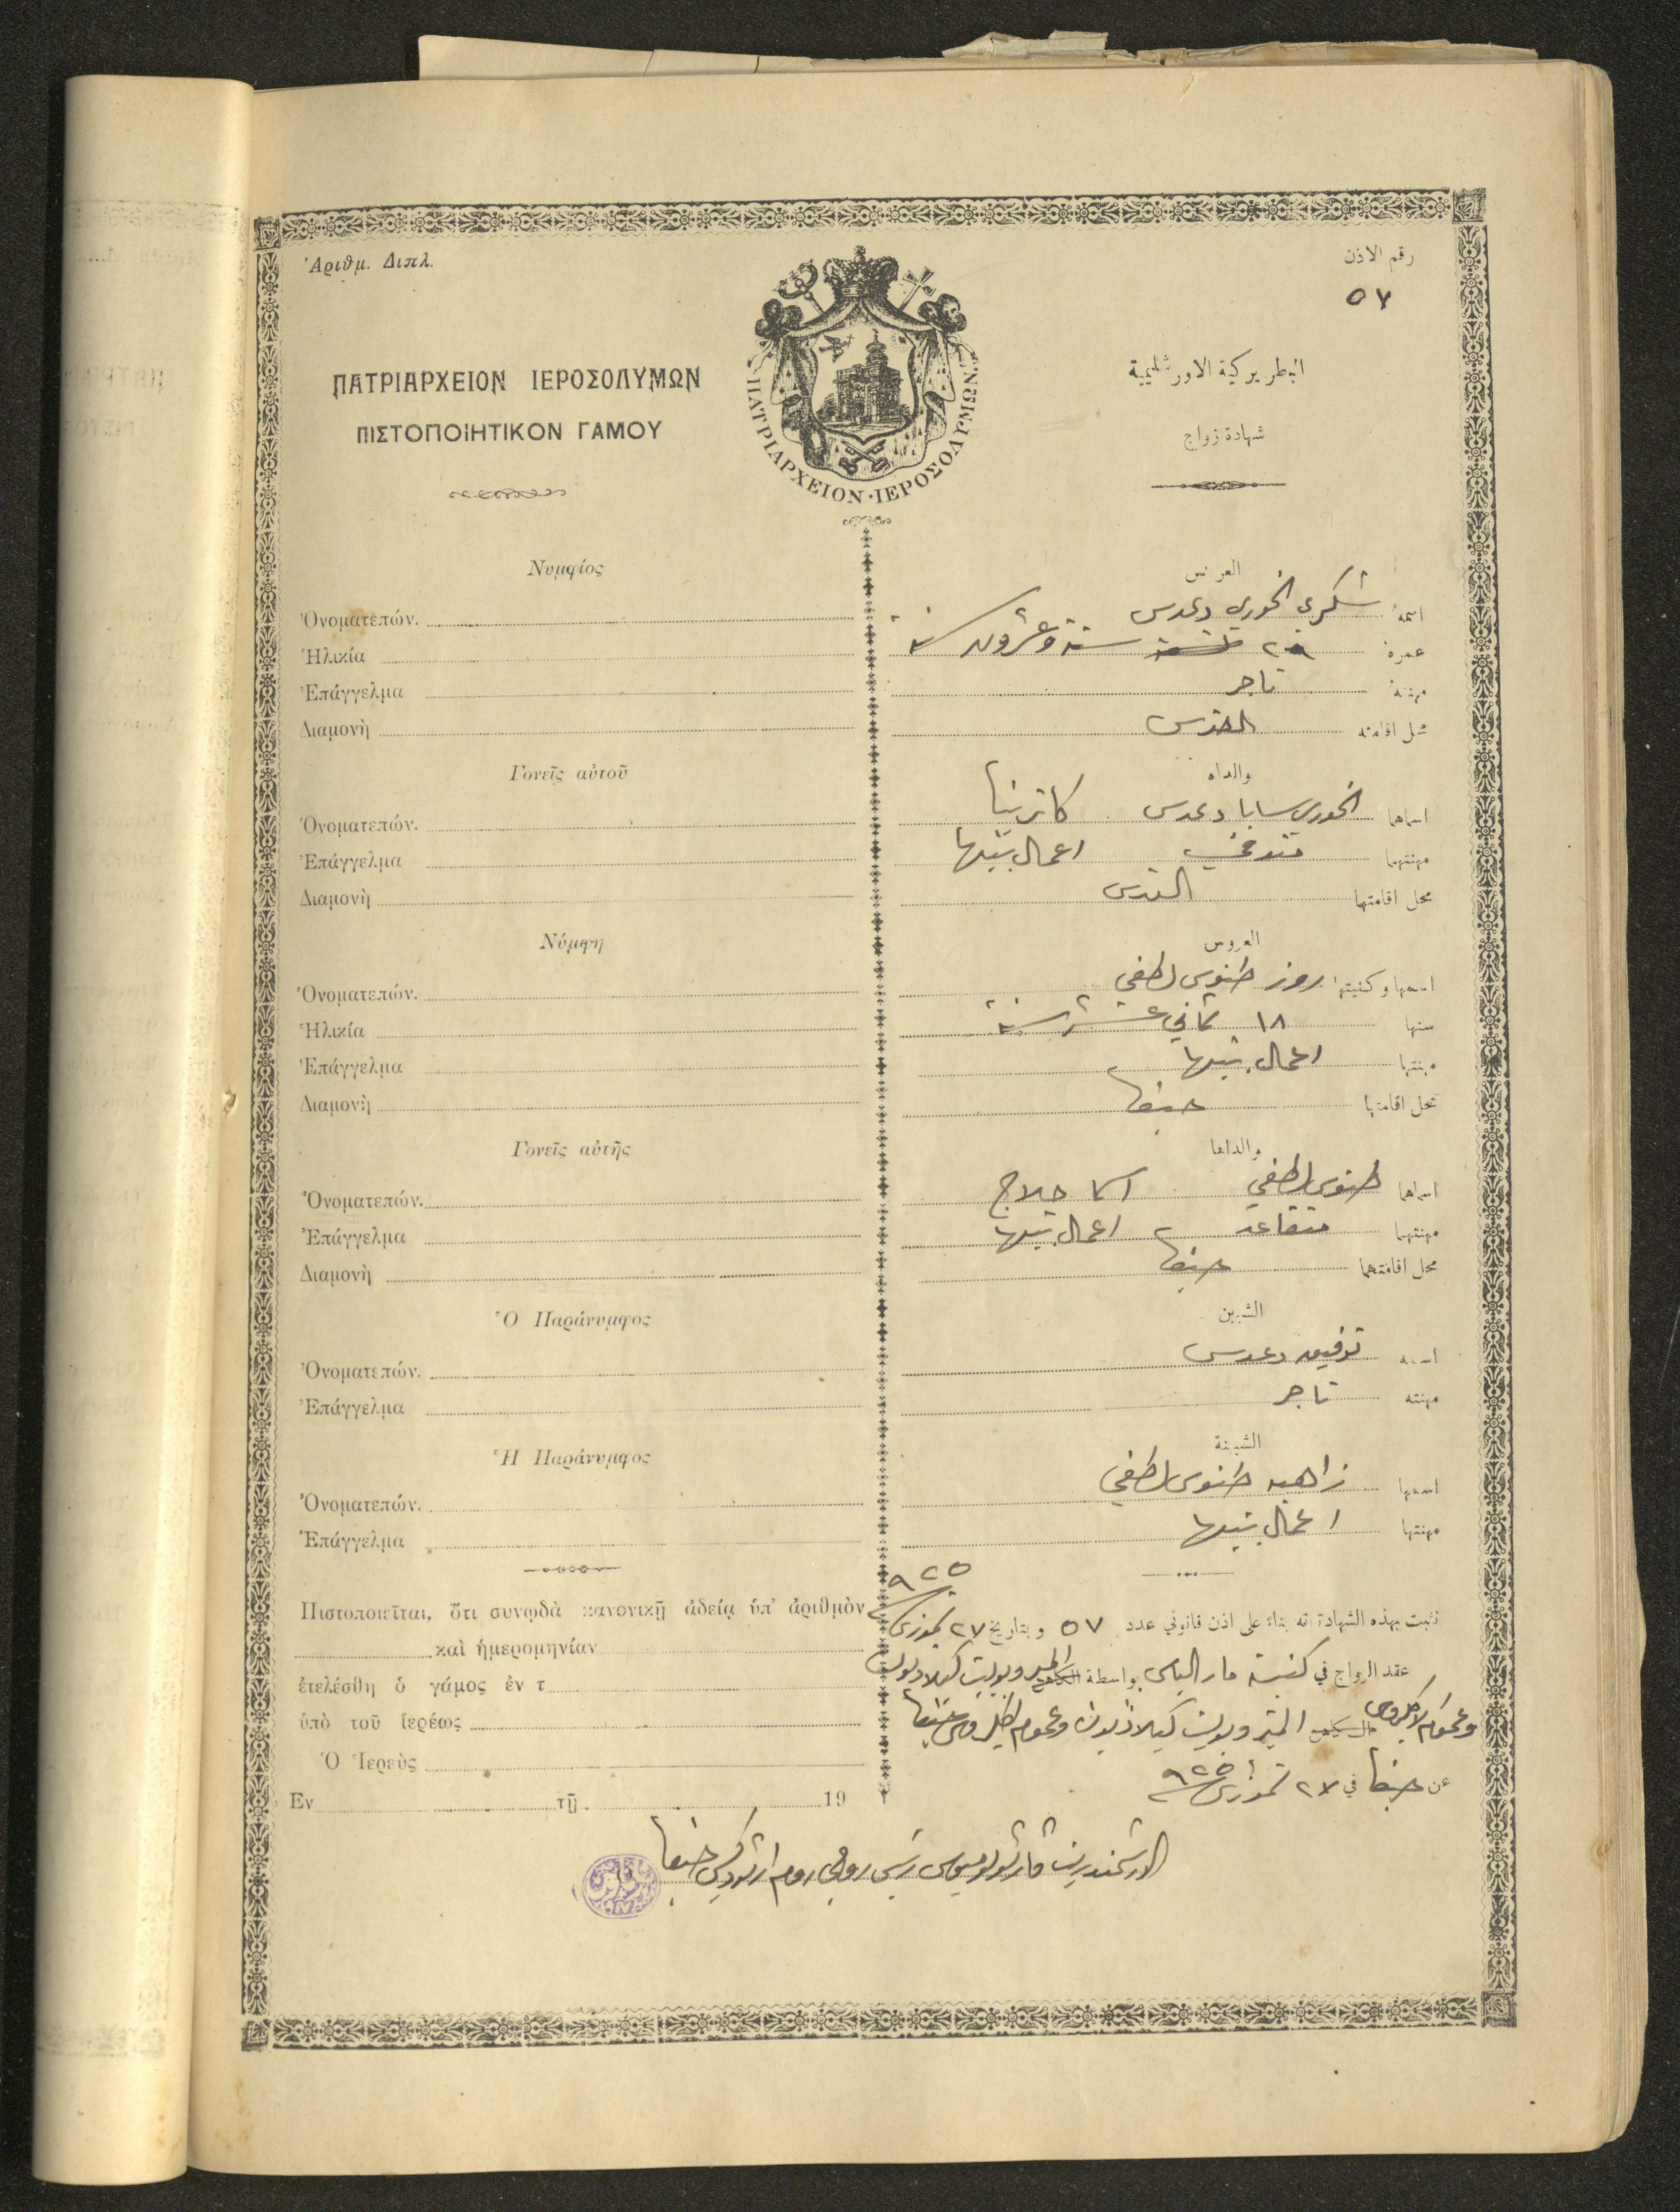 Ἀριθμ. Διπλ.
رقم الاذن
٥٧
ΠΑΤΡΙΑΡΧΕΙΟΝ ΙΕΡΟΣΟΛΥΜΩΝ
ΠΙΣΤΟΠΟΙΗΤΙΚΟΝ ΓΑΜΟΥ
ΠΑΤΡΙΑΡΧΕΙΟΝ·ΙΕΡΟΣΟΛΥΜΩΝ
البطريركية الاورشليمية
شهادة زواج
Νυμφίος
Ὀνοματεπών.
Ἡλικία
Ἐπάγγελμα
Διαμονὴ
Γονεῖς αὐτοῦ
Ὀνοματεπών.
Ἐπάγγελμα
Διαμονὴ
Νύμφη
Ὀνοματεπών.
Ἡλικία
Ἐπάγγελμα
Διαμονὴ
Γονεῖς αὐτῆς
Ὀνοματεπών.
Ἐπάγγελμα
Διαμονὴ
Ὁ Παράνυμφος
Ὀνοματεπών.
Ἐπάγγελμα
Ἡ Παράνυμφος
Ὀνοματεπών.
Ἐπάγγελμα
Πιστοποιεῖται, ὅτι συνῳδὰ κανονικῇ ἀδείᾳ ὑπ' ἀριθμὸν
καὶ ἡμερομηνίαν
ἐτελέσθη ὁ γάμος ἐν τ
ὑπὸ τοῦ ἱερέως
Ὁ Ἱερεὺς
Εν τῇ 19
العريس
اسمه شكري الخوري دعدس
عمره ٢٦ ستة وعشرون سنة
مهنته تاجر
محل اقامته القدس
والداه
اسماهما الخوري سابا دعدس كاترينا
مهنتهما متوفي اعمال بيتها
محل اقامتهما القدس
العروس
اسمها وكنيتها روز طنوس لطفي
سنها ١٨ ثماني عشر سنة
مهنتها اعمال بيتها
محل اقامتها حيفا
والداها
اسماهما طنوس لطفي اسما حلاج
مهنتهما متقاعد اعمال بيتها
محل اقامتهما حيفا
الشبين
اسمه توفيق دعدس
مهنته تاجر
الشبينة
اسمها زاهيه طنوس لطفي
مهنتها اعمال بيتها
نثبت بهذه الشهادة انه بناء على اذن قانوني عدد ٥٧ وبتاريخ ٢٧ تموز سنة ٩٢٥
عقد الزواج في كنيسة مار الياس بواسطة المتروبوليت كيلاديون
وعموم الاكليروس المتروبوليت كيلاديون وعموم اكليروس حيفا
عن حيفا في ٢٧ تموز سنة ٩٢٥
الارشمندريت رئيس روحي روم ارثوذكس حيفا